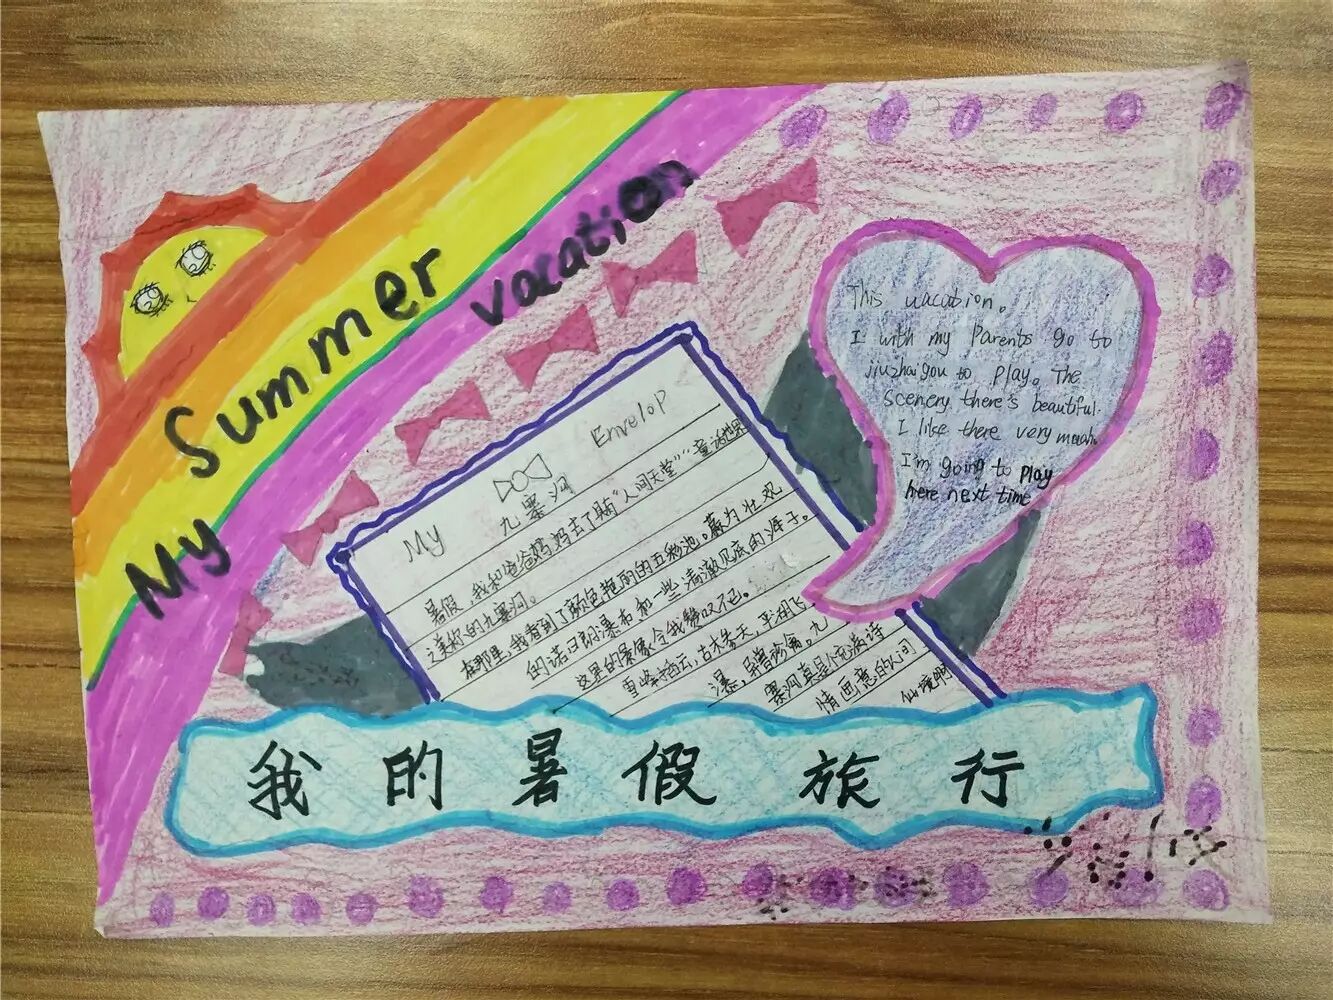 My Summer vacation
This vacation.
I with my Parents go to
jiuzhaigou to play. The
scenery there's beautiful.
I like there very much.
I'm going to play
here next time
My Envelop
九寨沟
暑假,我和爸爸妈妈去了有“人间天堂”“童话世界
之美称的九寨沟。
在那里,我看到了颜色艳丽的五彩池。最为壮观
的诺日朗瀑布,和一些清澈见底的海子。
这里的景象令我赞叹不已。
雪峰插云,古木参天,平湖飞
瀑,异兽珍禽。九
寨沟真是个充满诗
情画意的人间
仙境啊
我的暑假旅行